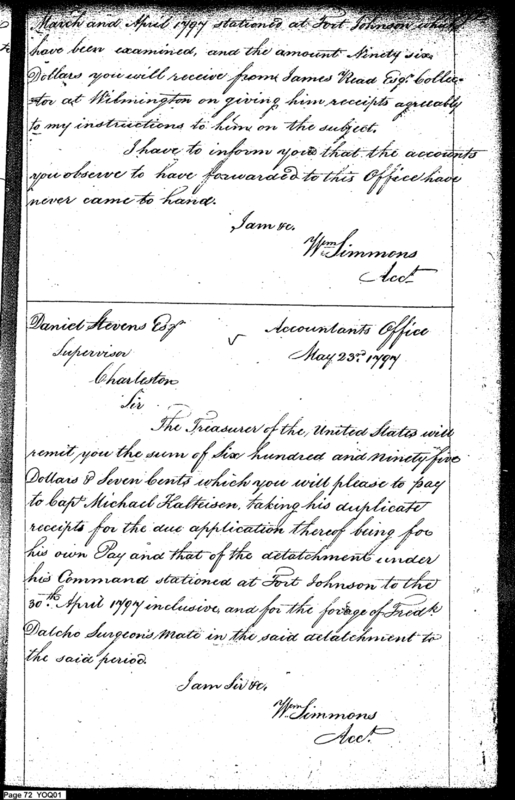 March and April 1797 stationed at Fort Johnson which
have been examined, and the amount Ninety six
Dollars you will receive from James Read Esqr. Collec-
-tor at Wilmington on giving him receipts agreeably
to my instructions to him on the subject.
I have to inform you that the accounts
you observe to have forwarded to this Office have
never came to hand.
I am &c.
Wm Simmons
Acct.
Daniel Stevens Esqr
Supervisor
Charleston
Accountants Office
May 23d. 1797
Sir
The Treasurer of the United States will
remit you the sum of Six hundred and Ninety five
Dollars & Seven Cents which you will please to pay
to Capt Michael Kalteisen, taking his duplicate
receipts for the due application thereof being for
his own Pay and that of the detatchment under
his Command stationed at Fort Johnson to the
30th. April 1797 inclusive, and for the forage of Fredk
Dalcho Surgeons Mate in the said detatchment to
the said period.
I am Sir &c.
Wm Simmons
Acct.
Page 72 YOQ01